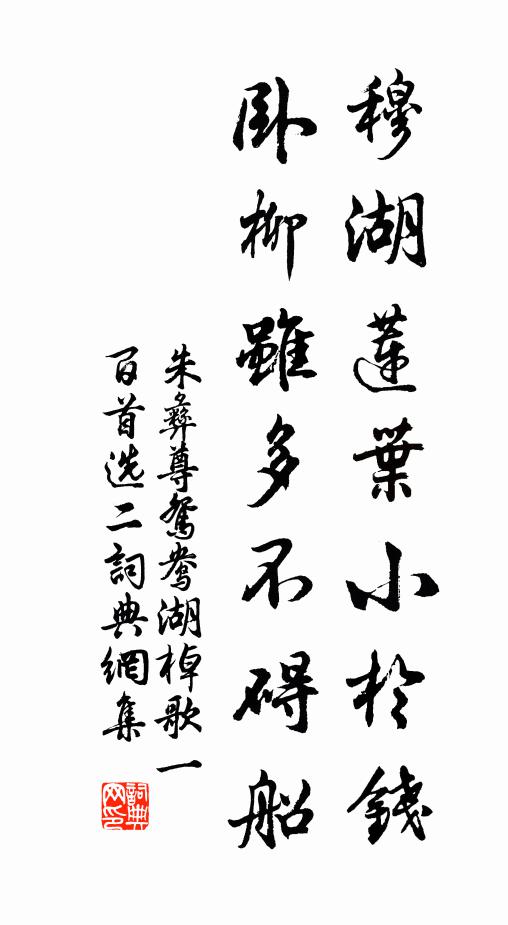 穆湖蓮葉小於錢
卧柳雖多不碍船
朱彝尊鴛鴦湖棹歌一
百首选二詞典網集
詞典
网印